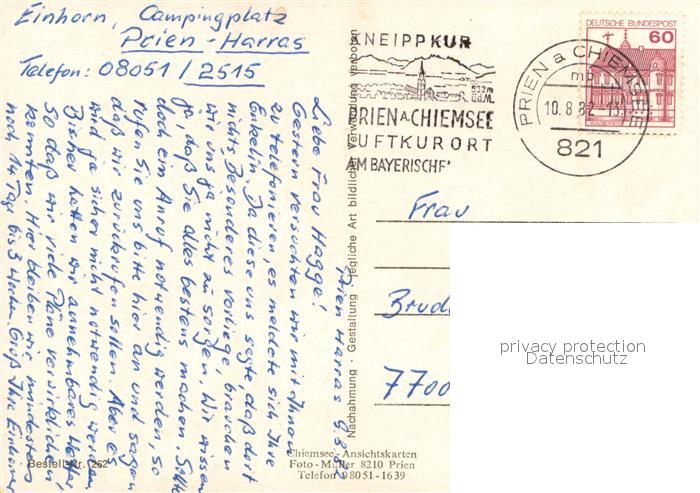 Einhorn, Campingplatz
Prien-Harras
Telefon: 08051/2515
Prien Harras 9.8.82
Liebe Frau Hagge!
Gestern versuchten wir mit Ihnen
zu telefonieren, es meldete sich Ihre
Enkelin. Da diese uns sagte daß dort
nichts Besonderes vorliege, brauchen
wir uns ja nicht zu sorgen. Wir wissen
ja, daß Sie alles bestens machen. Sollte
doch ein Anruf notwendig werden, so
rufen Sie uns bitte hier an und sagen
daß wir zurückrufen sollen. Aber es
wird ja sicher nicht notwendig werden.
Bisher hatten wir annehmbares Wetter,
so daß wir viele Pläne verwirklichen
konnten. Hier bleiben wir mindestens
noch 14 Tage bis 3 Wochen. Gruß Ihre Einhorns
Bestell-Nr. 262
Nachahmung - Gestaltung - Jegliche Art bildlicher Verwendung verboten
Chiemsee-Ansichtskarten
Foto-Müller 8210 Prien
Telefon 08051-1639
KNEIPPKUR
932m
ü.d.M.
PRIEN A. CHIEMSEE
LUFTKURORT
AM BAYERISCHE
PRIEN a CHIEMSEE
mb
10.8.82-18
821
DEUTSCHE BUNDESPOST
60
Frau
Brude
7700
privacy protection
Datenschutz